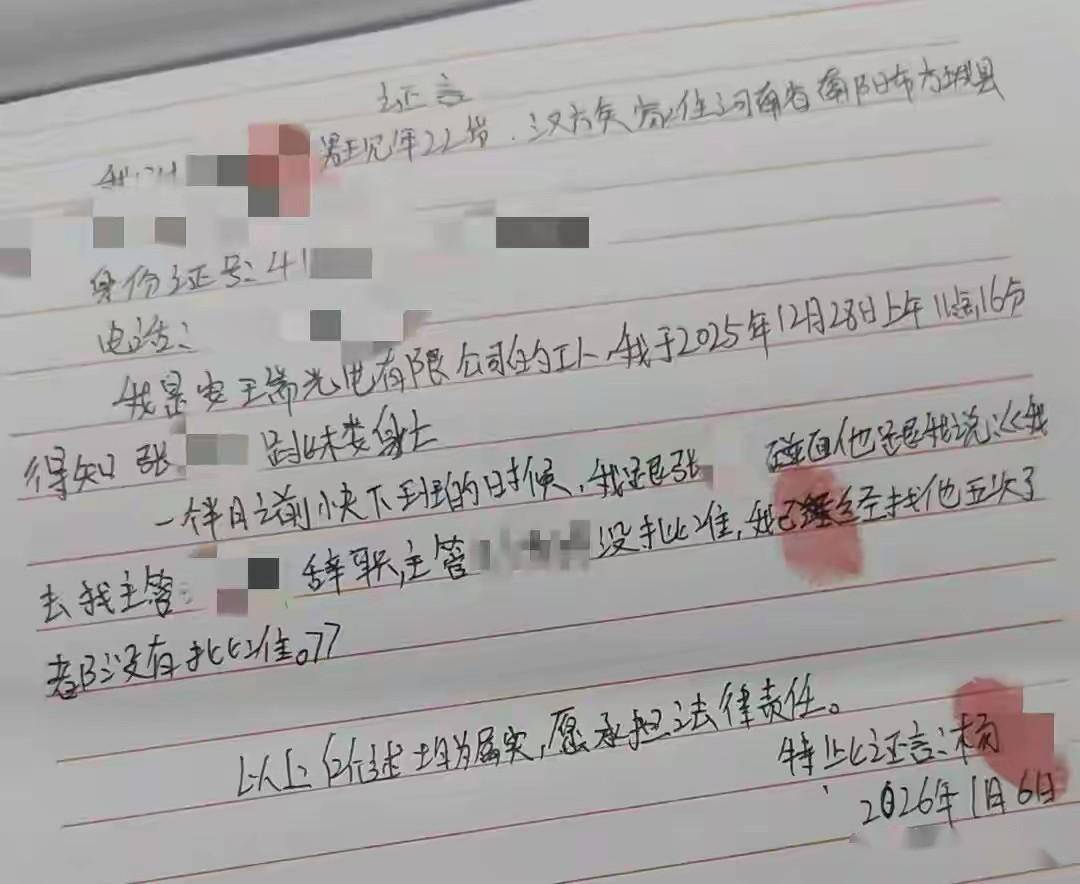 证言
我叫 男现年22岁.汉族家住河南省南阳市方城县
身份证号:41
电话:
我是安王端光电有限公司的工人,我于2025年12月28日上午11点16分
得知张 跳楼身亡
一个半月之前小夹下班的时候,我跟张 碰面他跟我说:《我
去找主管: 辞职,主管 没批准,我已经找他五次了
都没有批准。》
以上陈述均为属实,愿承担法律责任。
特此证言:杨
2026年1月6日